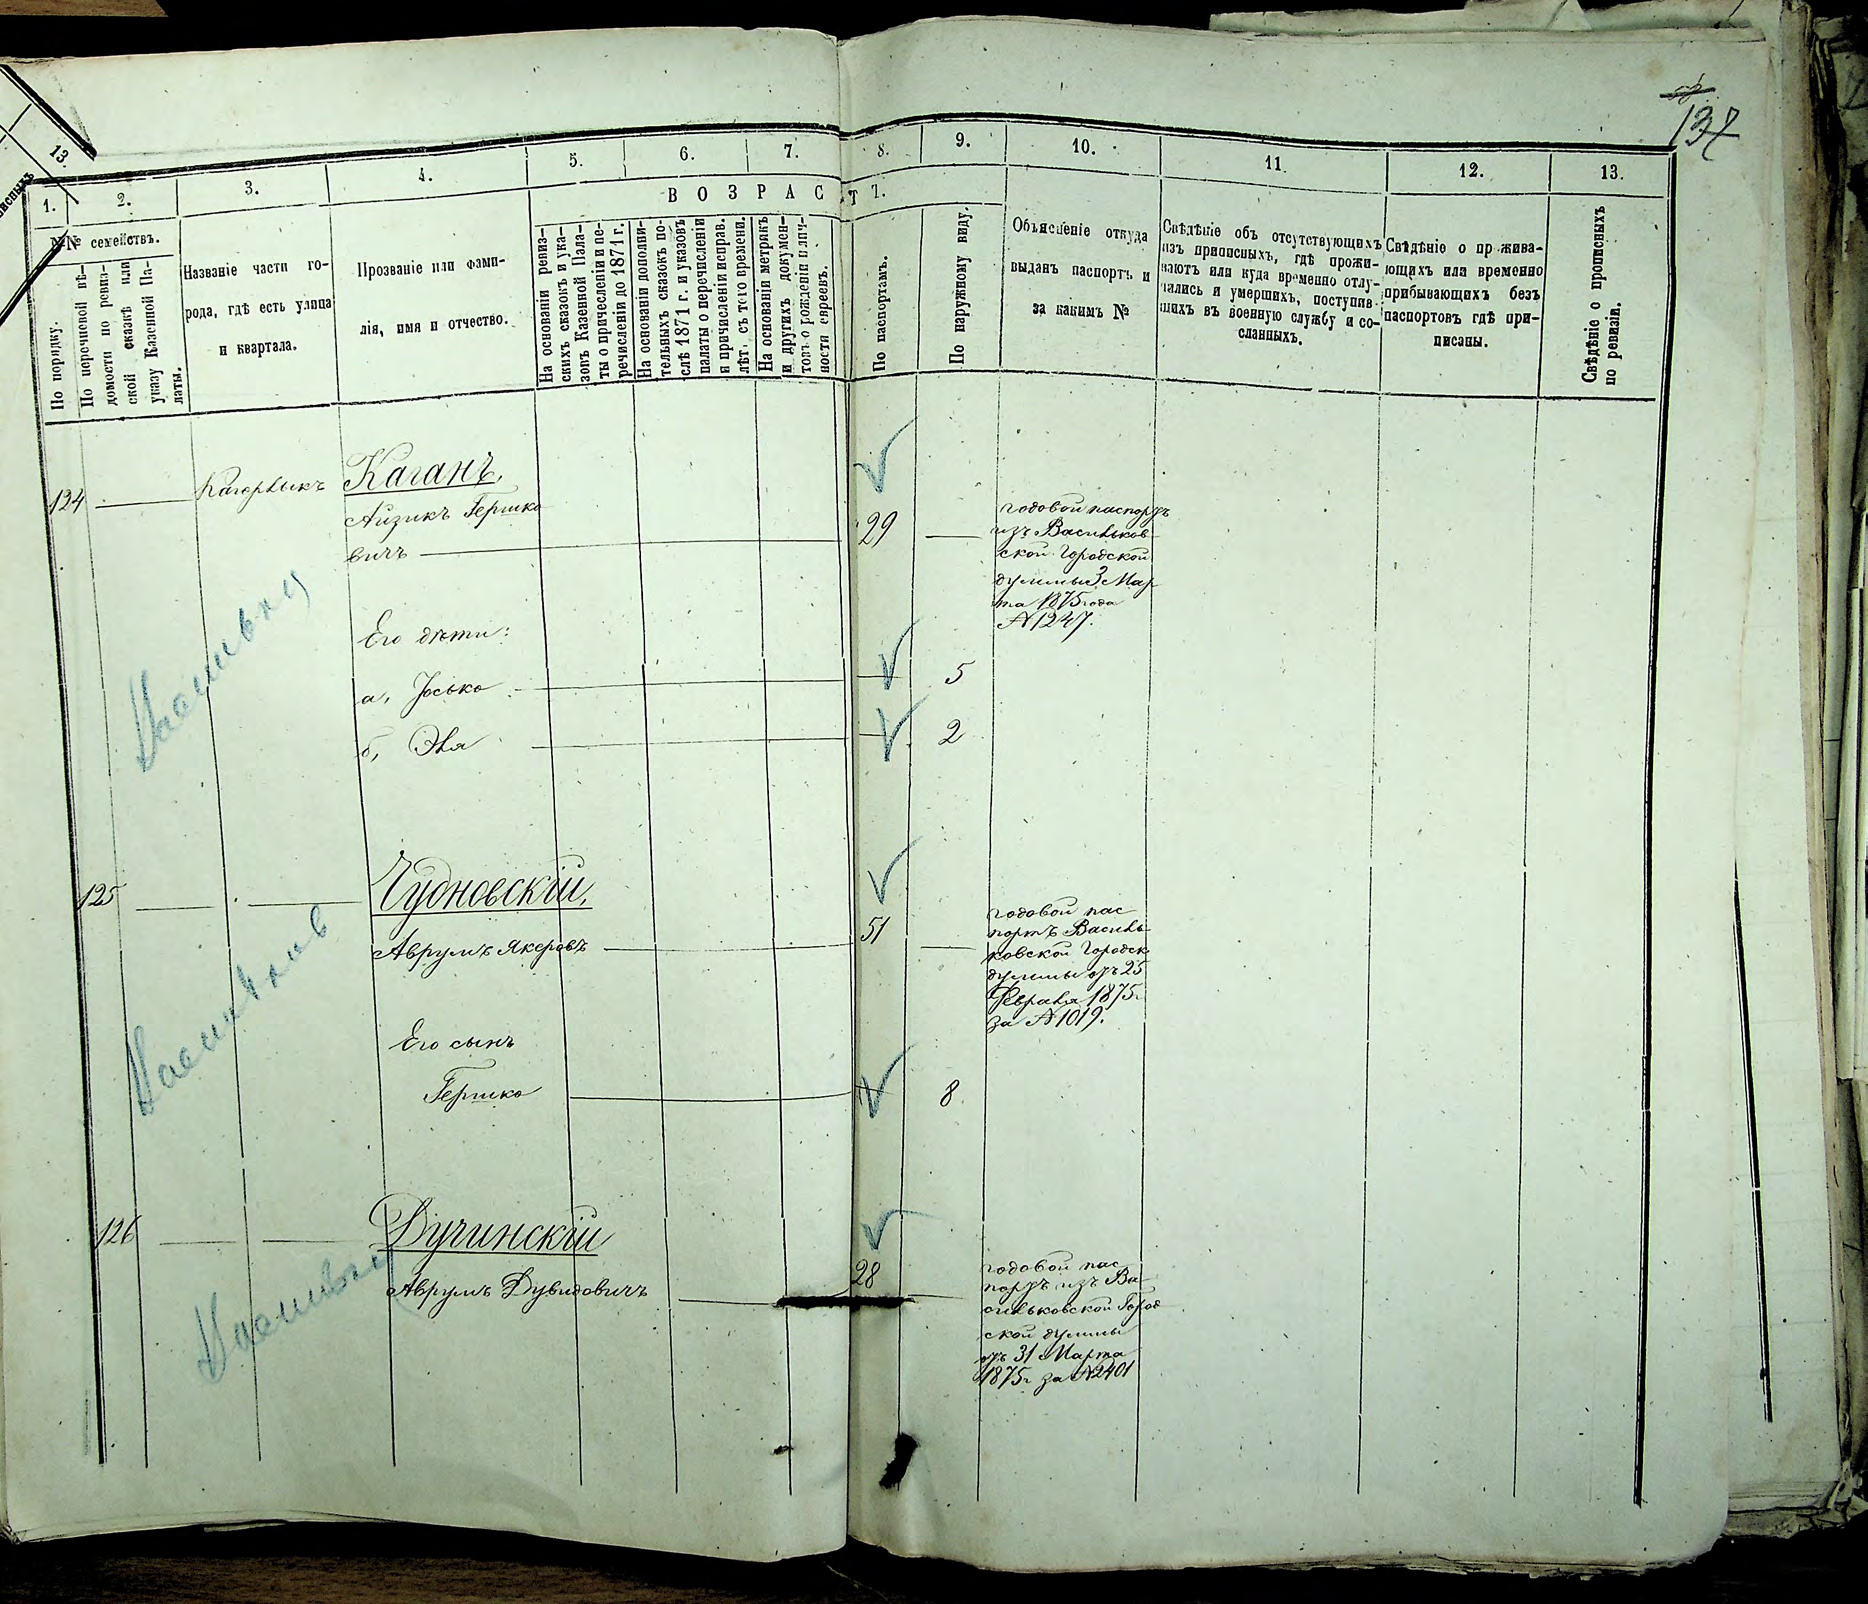 137
13.
1.
2.
3.
4.
5.
6.
7.
8.
9.
10.
11.
12.
13.
ВОЗРАСТЪ.
№№ семействъ.
По порядку.
По перечневой вѣ-
домости по ревиз-
ской сказкѣ или
указу Казенной Па-
латы.
Названіе части го-
рода, гдѣ есть улица
и квартала.
Прозваніе или фами-
лія, имя и отчество.
На основаніи ревиз-
скихъ сказокъ и ука-
зовъ Казенной Пала-
ты о причесленіи и пе-
речисленіи до 1871 г.
На основаніи дополни-
тельныхъ сказокъ по-
слѣ 1871 г. и указовъ
палаты о перечисленіи
и причисленіи исправ.
лѣт. съ того времени.
На основаніи метрикъ
и другихъ докумен-
товъ о рожденіи и лич-
ности евреевъ.
По паспортамъ.
По наружному виду.
Объясненіе откуда
выданъ паспортъ и
за какимъ №
Свѣдѣніе объ отсутствующихъ
изъ приписныхъ, гдѣ прожи-
ваютъ или куда временно отлу-
чались и умершихъ, поступив-
шихъ въ военную службу и со-
сланныхъ.
Свѣдѣніе о прожива-
ющихъ или временно
прибывающихъ безъ
паспортовъ гдѣ при-
писаны.
Свѣдѣніе о прописныхъ
по ревизіи.
124
Кагарлыкъ
Каганъ.
Айзикъ Гершко
вичъ
29
годовой паспортъ
изъ Васильков
ской Городской
думмы 3 Мар
та 1875 года
№ 1247.
Его дѣти:
а, Іосько
5
б, Эля
2
125
Чудновскій.
Аврумъ Якеровъ
51
годовой пас
портъ Василь
ковской Городск
думмы отъ 25
Февраля 1875 г
за № 1019.
Его сынъ
Гершко
8
126
Дучинскій
Аврумъ Дувидовичъ
28
годовой пас
портъ изъ Ва
сильковской Город
ской думмы
отъ 31 Марта
1875 г за № 2401